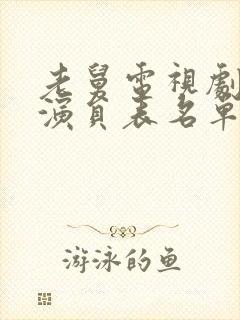 老舅電視劇
演員表名單
游泳的鱼